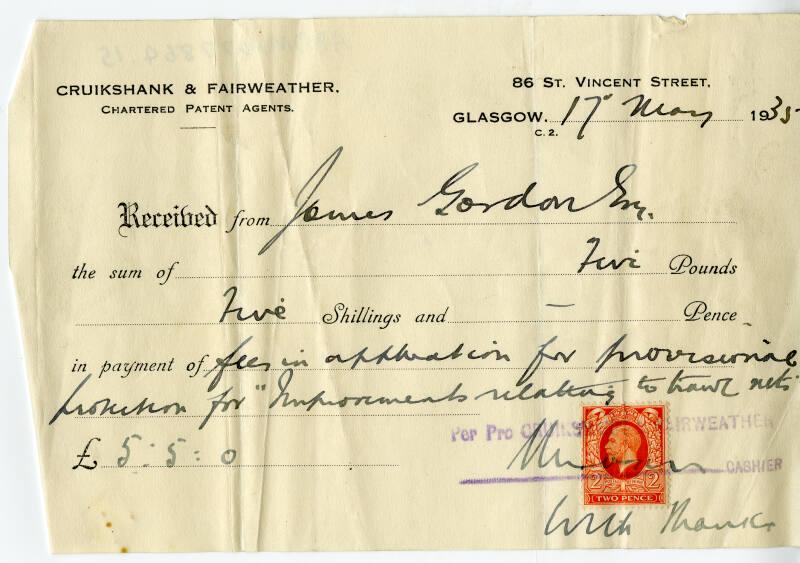 CRUIKSHANK & FAIRWEATHER.
CHARTERED PATENT AGENTS.
86 ST. VINCENT STREET,
GLASGOW. 17 May 1935
C.2.
Received from James Gordon Esq.
the sum of Five Pounds
Five Shillings and — Pence
in payment of fees in application for provisional
protection for "Improvements relating to trawl nets"
£ 5:5:0
Per Pro CRUIKS FAIRWEATHER
CASHIER
2 2
TWO PENCE
With Thanks